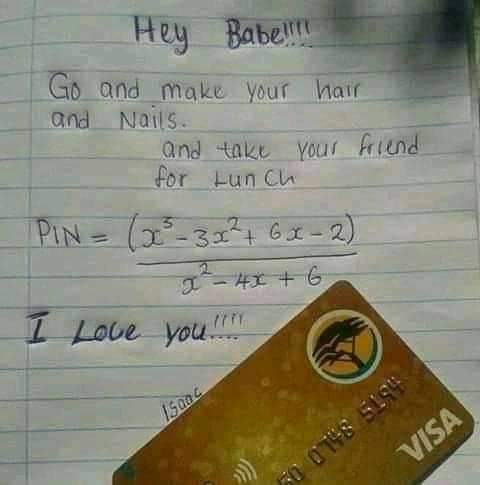 Hey Babe!!!!
Go and make your hair
and Nails.
and take your friend
for Lunch
PIN = (x⁵ - 3x² + 6x - 2)
x² - 4x + 6
I Love you!!!!
Isaac
0748 5194
VISA